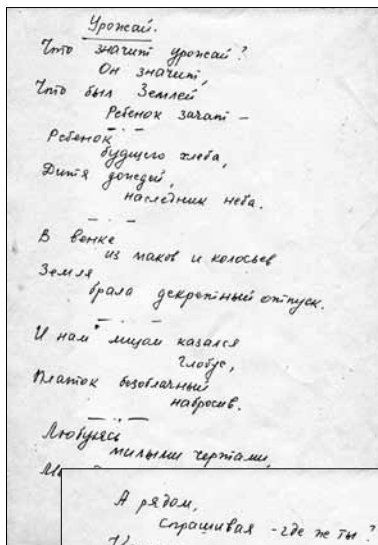 Урожай.
Что значит урожай?
Он значит,
Что был Землей
Ребенок зачат —
Ребенок
будущего хлеба,
Дитя дождей,
наследник неба.
В венке
из маков и колосьев
Земля
брала декретный отпуск.
И нам лицом казался
глобус,
Платок безоблачный
набросив.
Любуясь
милыми чертами,
А рядом,
Спрашивая - где же ты?